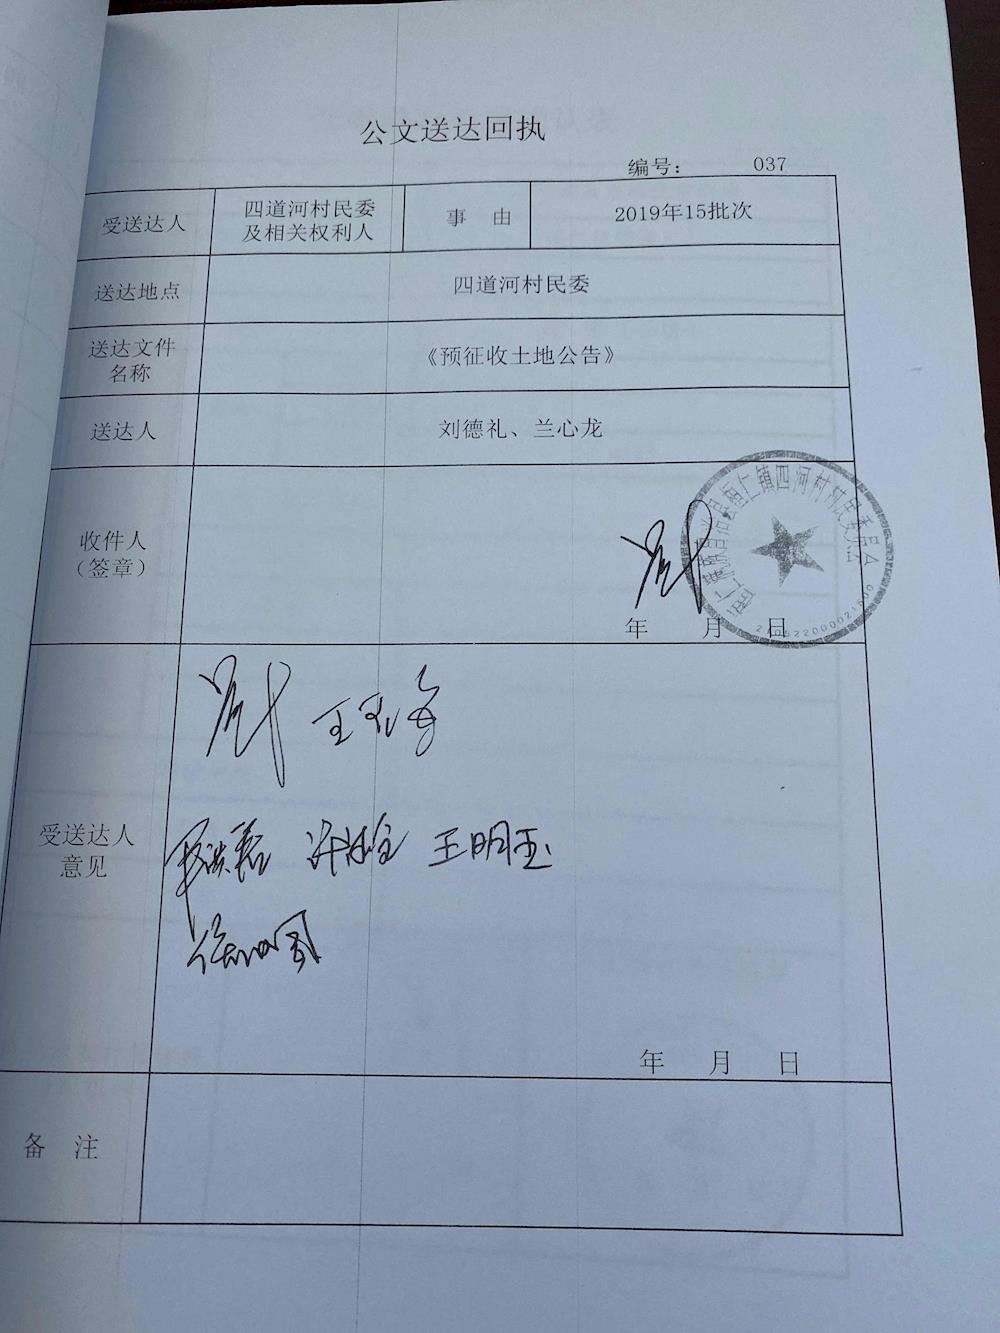 公文送达回执
编号： 037
受送达人
四道河村民委
及相关权利人
事 由
2019年15批次
送达地点
四道河村民委
送达文件
名称
《预征收土地公告》
送达人
刘德礼、兰心龙
收件人
（签章）
年 月 日
受送达人
意见
王明玉
年 月 日
备 注